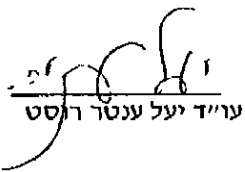 עו״ד יעל ענטר רוסט